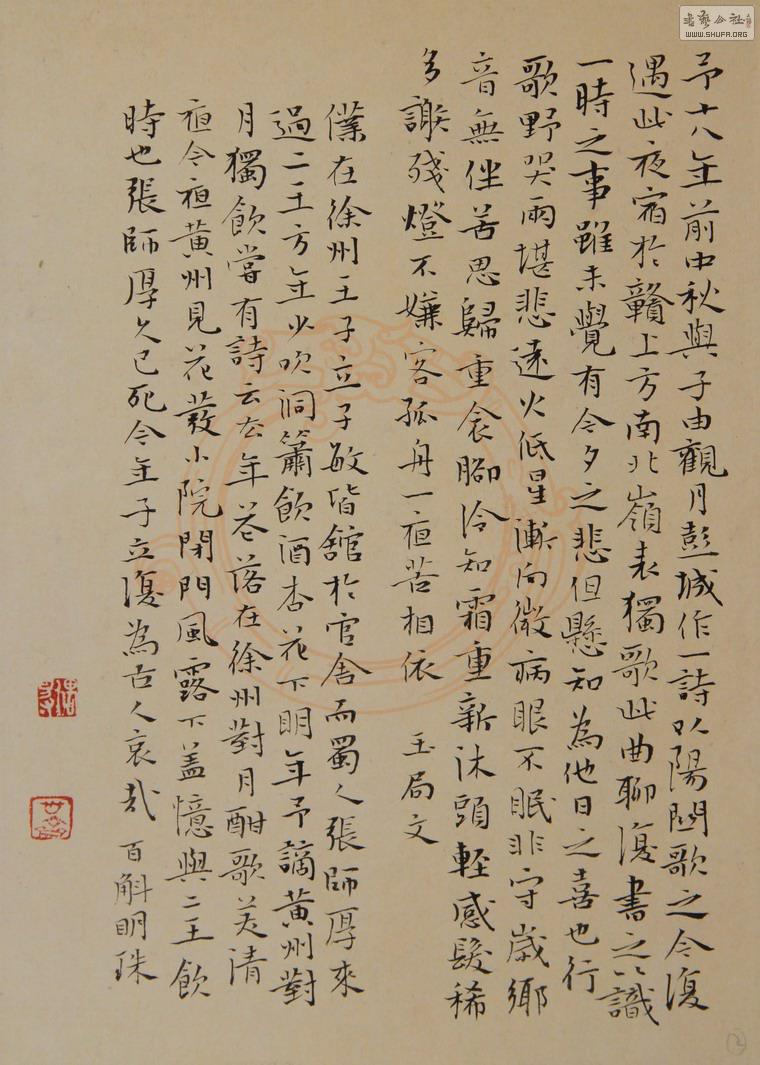 予十八年前中秋與子由觀月彭城作一詩以陽關歌之今復
遇此夜宿於贛上方南北嶺表獨歌此曲聊復書之以識
一時之事雖未覺有今夕之悲但懸知為他日之喜也行
歌野哭兩堪悲遠火低星漸向微病眼不眠非守歲鄉
音無伴苦思歸重衾腳冷知霜重新沐頭輕感髮稀
多謝殘燈不嫌客孤舟一夜苦相依 玉局文
僕在徐州王子立子敏皆館於官舍而蜀人張師厚來
過二王方年少吹洞簫飲酒杏花下明年予謫黃州對
月獨飲嘗有詩云去年花落在徐州對月酣歌美清
夜今夜黃州見花發小院閉門風露下盖憶與二王飲
時也張師厚久已死今年子立復為古人哀哉 百斛明珠
書藝公社
WWW.SHUFA.ORG